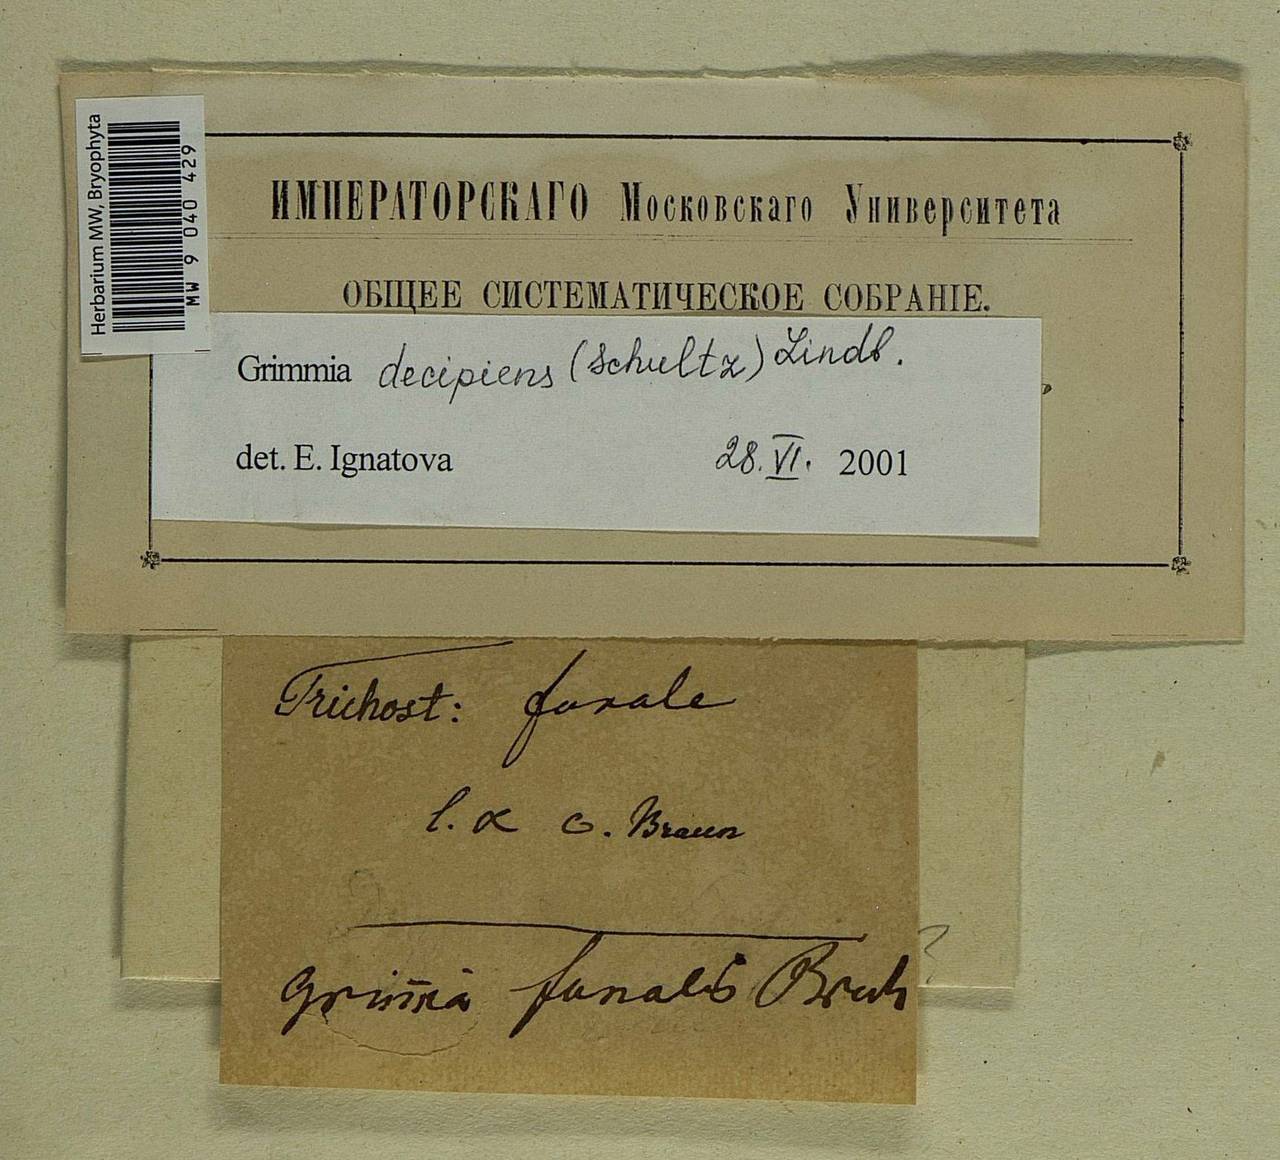 Herbarium MW, Bryophyta
MW 9 040 429
ИМПЕРАТОРСКАГО Московскаго Университета
ОБЩЕЕ СИСТЕМАТИЧЕСКОЕ СОБРАНІЕ.
Grimmia decipiens (Schultz) Lindb.
det. E. Ignatova 28.VI. 2001
Trichost: funale
l. α c. Braun
Grim̄ia funalis Bruch
?